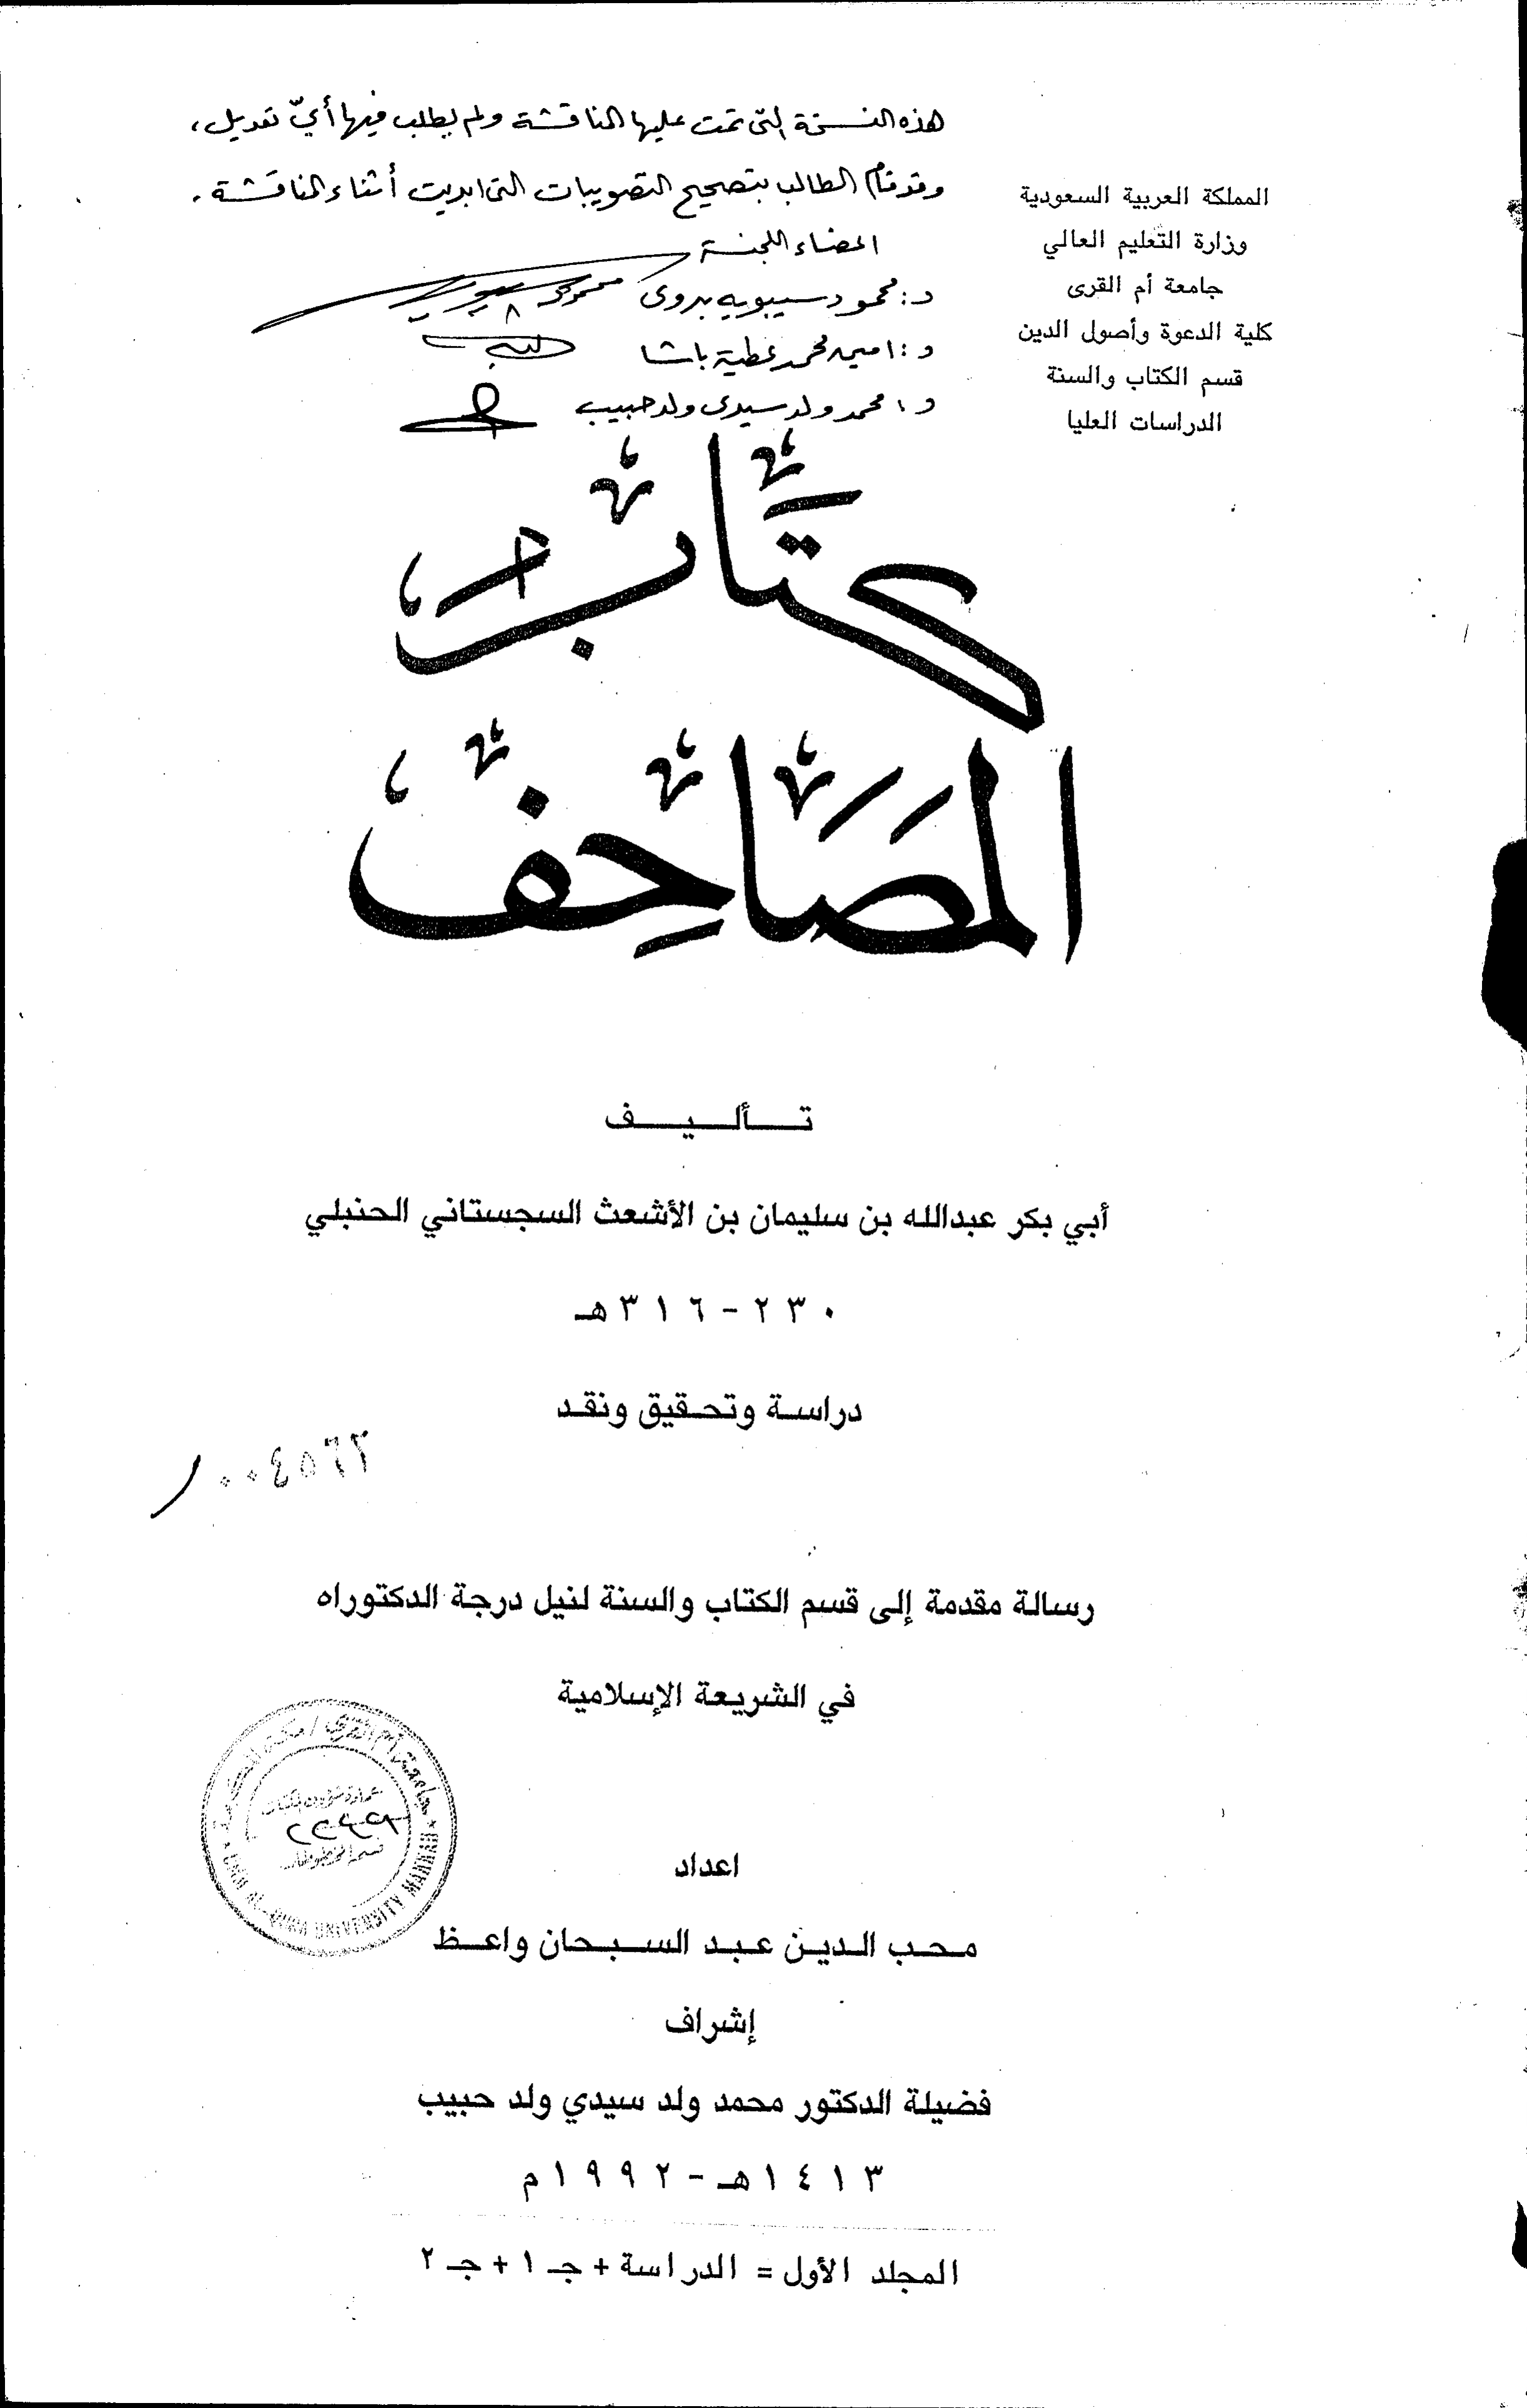 المملكة العربية السعودية
وزارة التعليم العالي
جامعة أم القرى
كلية الدعوة وأصول الدين
قسم الكتاب والسنة
الدراسات العليا
هذه النسخة التى تمت عليها المناقشة ولم يطلب فيها أيّ تعديل،
وقد قام الطالب بتصحيح التصويبات التى ابديت أثناء المناقشة.
اعضاء اللجنة
د: محمود سيبويه بدوى
د: امين محمد عطية باشا
د: محمد ولد سيدى ولد حبيب
كِتَابُ
المَصَاحِف
تــألــيــف
أبي بكر عبدالله بن سليمان بن الأشعث السجستاني الحنبلي
٢٣٠ - ٣١٦هـ
دراسـة وتحـقيق ونقـد
٠٠٤٥٦٢
رسالة مقدمة إلى قسم الكتاب والسنة لنيل درجة الدكتوراه
في الشريعة الإسلامية
جامعة أم القرى / مكة المكرمة
قسم المخطوطات
UMM AL-QURA UNIVERSITY MAKKAH
اعداد
محب الدين عبد السبحان واعظ
إشراف
فضيلة الدكتور محمد ولد سيدي ولد حبيب
١٤١٣هـ - ١٩٩٢م
المجلد الأول = الدراسة + جـ ١ + جـ ٢